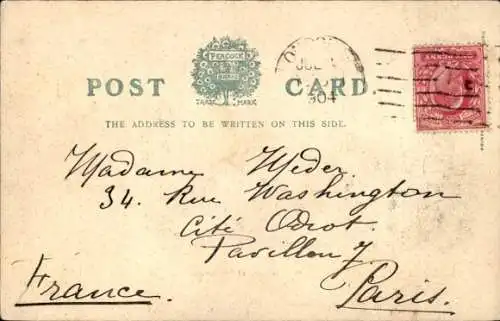 PEACOCK
POST CARD
TRADE MARK
THE ADDRESS TO BE WRITTEN ON THIS SIDE.
JUL
04
Madame Meder
34. Rue Washington
Cité Odiot.
Pavillon 7
Paris.
France.